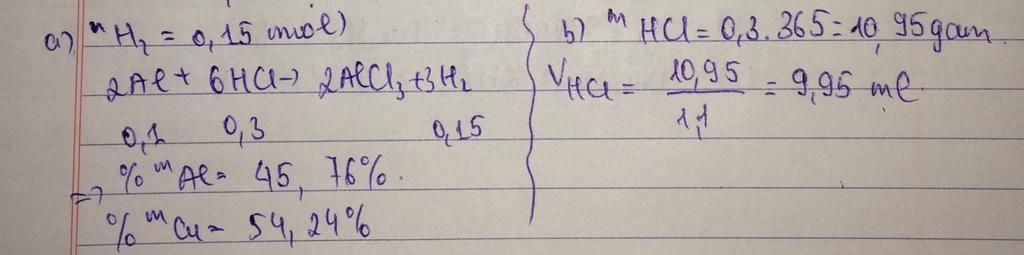 a) nH₂ = 0,15 (mol)
2Al + 6HCl → 2AlCl₃ + 3H₂
0,1 0,3 0,15
=> % mAl = 45,76%.
% mCu = 54,24%
b) mHCl = 0,3.365 = 10,95 gam.
VHCl = 10,95 / 1,1 = 9,95 ml.